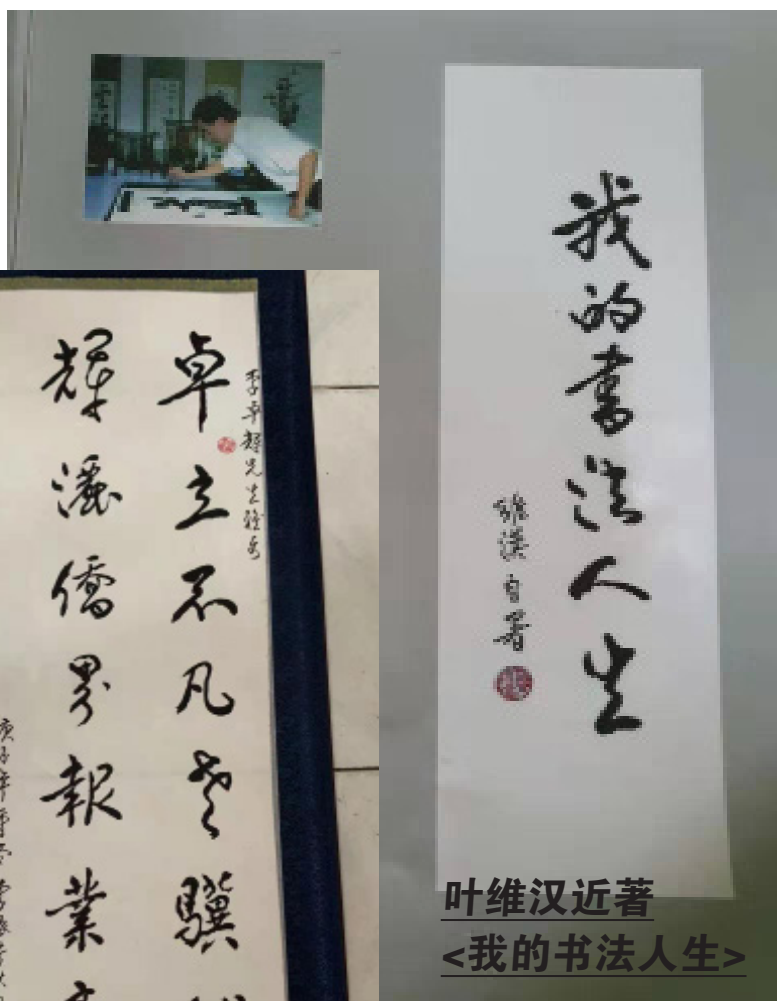 我的书法人生
維漢自署
李卓輝先生雅正
卓立不凡老驥
輝灑儒界報業
叶维汉近著
<我的书法人生>